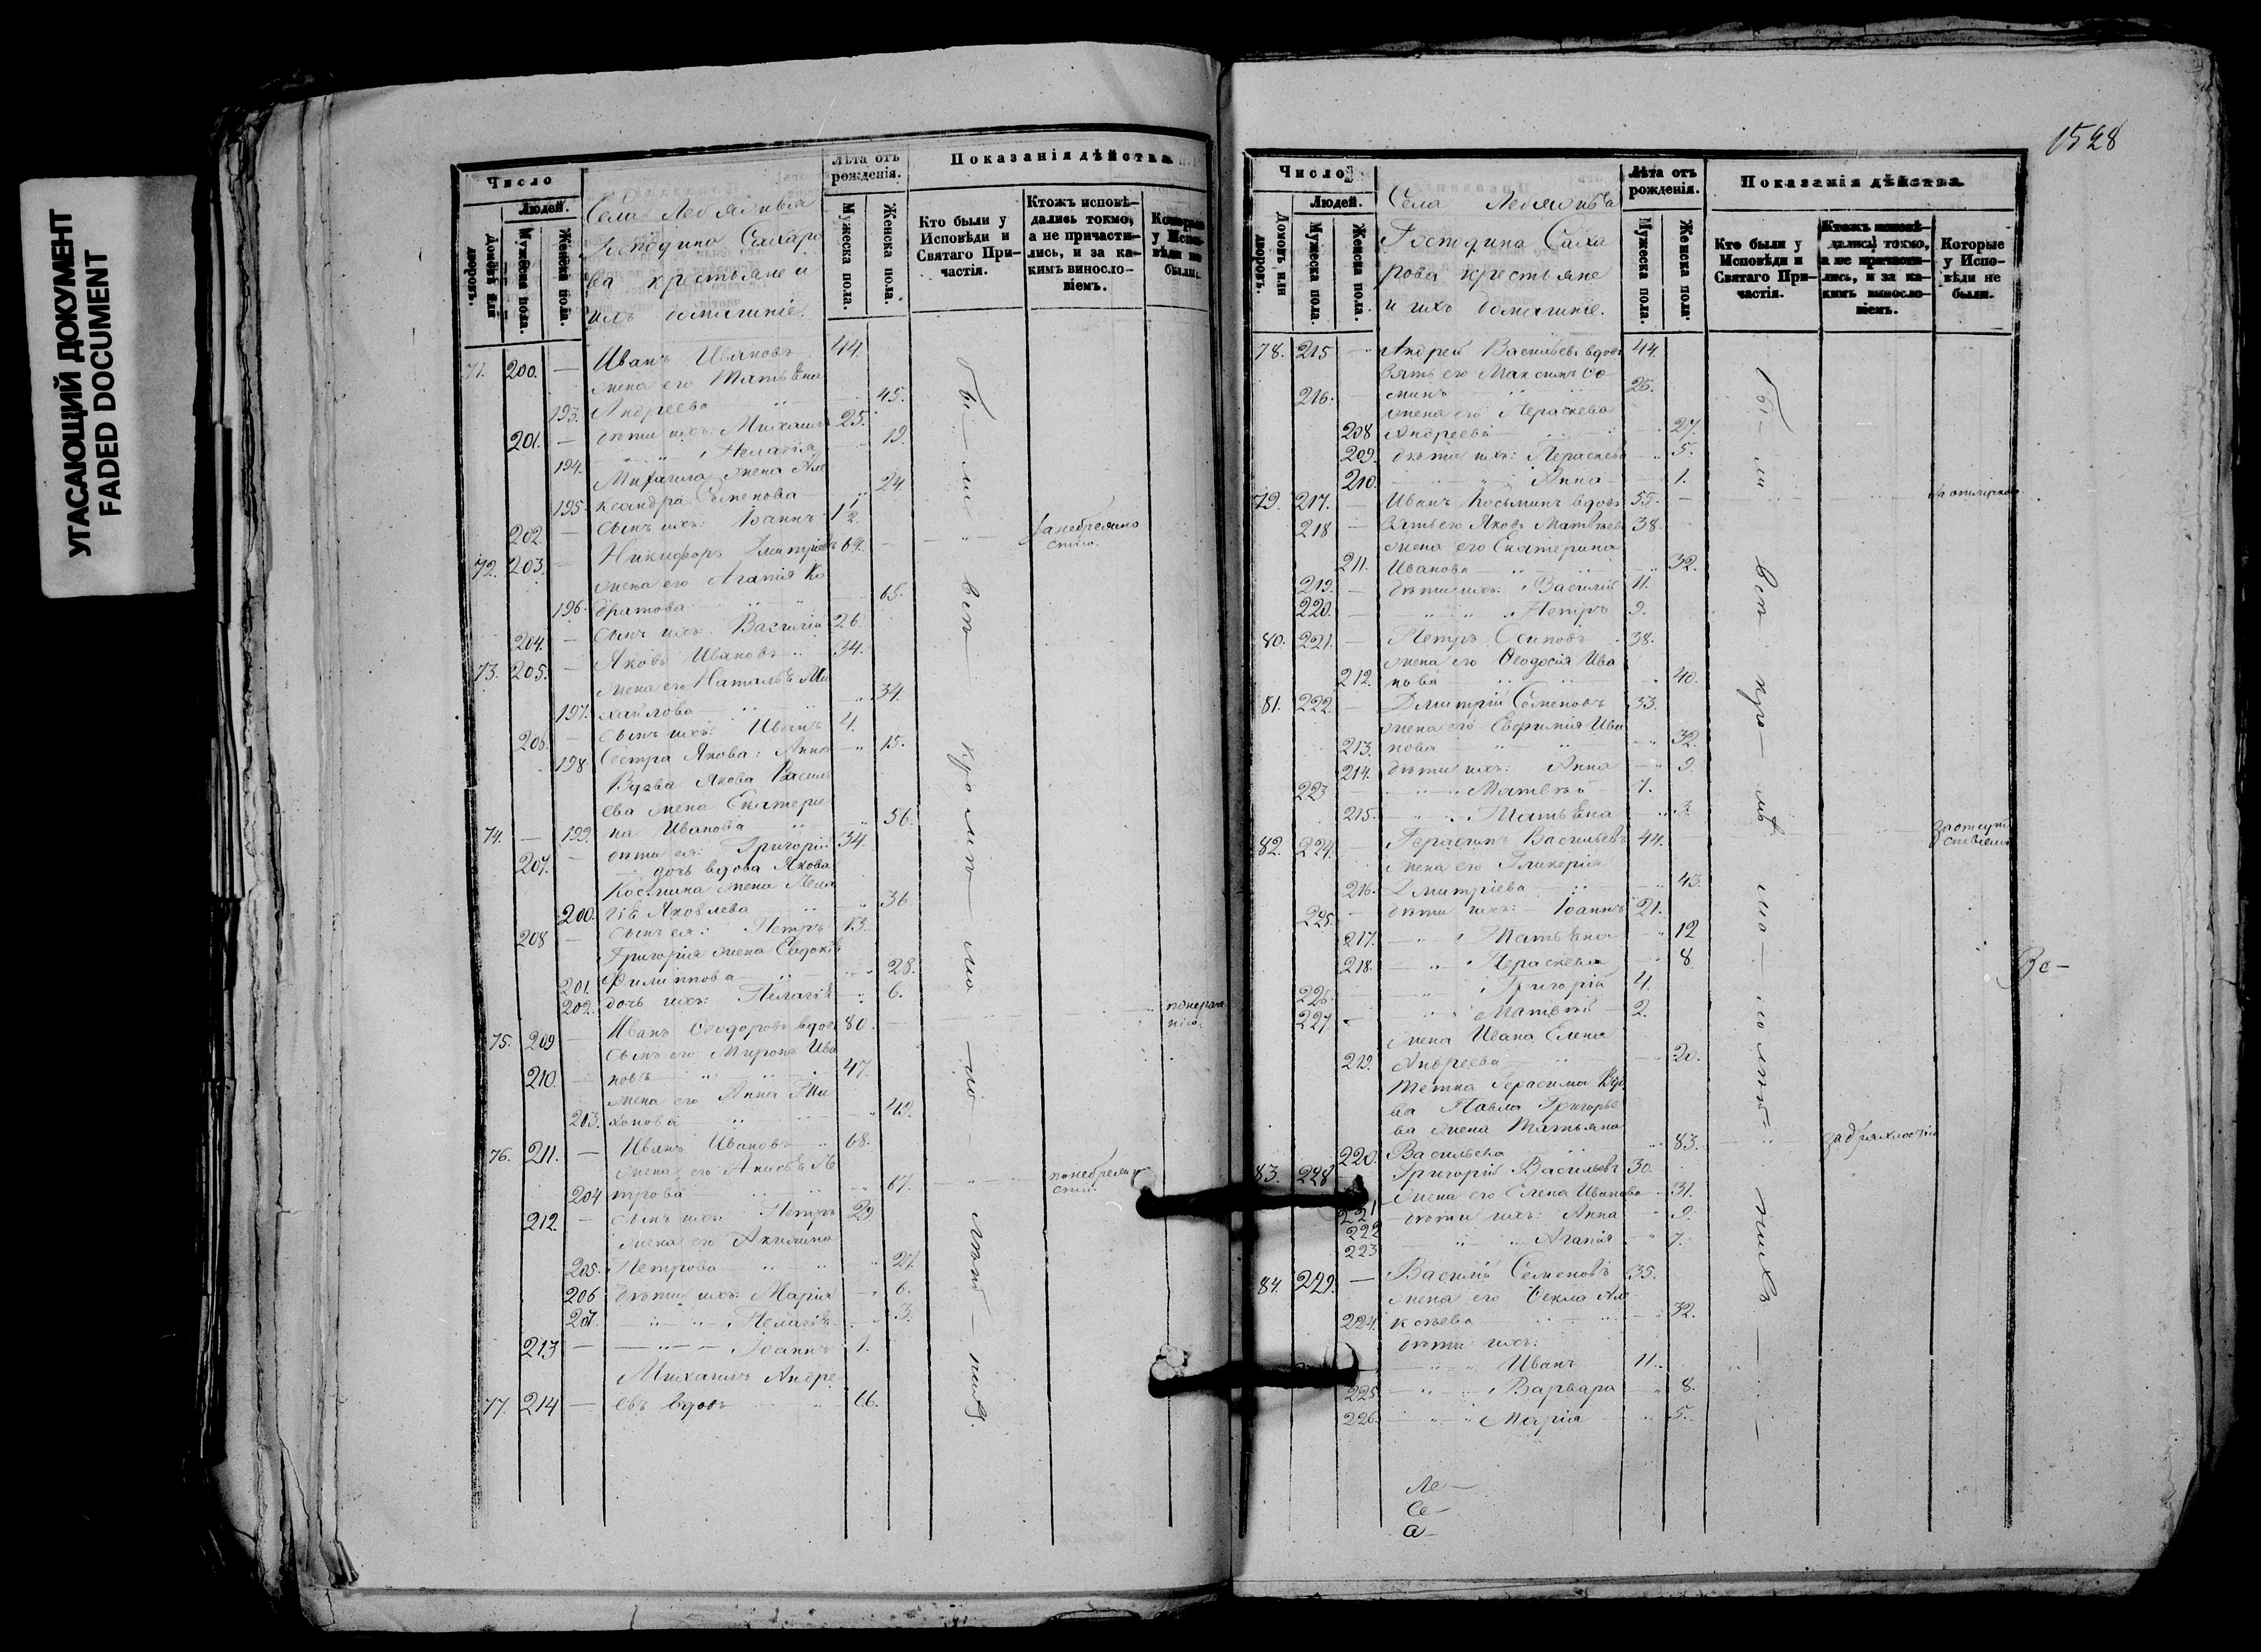 УГАСАЮЩИЙ ДОКУМЕНТ
FADED DOCUMENT
Число
Людей.
Домовъ или дворовъ.
Мужеска пола.
Женска пола.
Села
Господина Сахаро
ва крестьяне и
ихъ домашніе.
Лѣта отъ рожденія.
Мужеска пола.
Женска пола.
Показанія дѣйства.
Кто были у Исповѣди и Святаго Причастія.
Ктожъ исповѣдались токмо, а не причастились, и за какимъ винословіемъ.
Которые у Исповѣди не были.
71. 200. — Иванъ Ивановъ 44.
жена его Татьѣна
193. Андреева 45.
201. — дѣти ихъ: Михаилъ 25.
194. Пелагія 19.
Михаила жена Але
195. ксандра Семенова 24.
202. — сынъ ихъ: Іоаннъ 1 1/2.
72. 203. — Никифоръ Дмитріевъ 69. за небреж
жена его Агапія Ко
196. дратова 65.
204. — сынъ ихъ: Василій 26.
73. 205. — Яковъ Ивановъ 34.
жена его Натальѣ Ми
197. хайлова 34.
206. — сынъ ихъ: Иванъ 4.
198 Сестра Якова: Анна 15.
Вдова Якова Василь
ева жена Екатери
74. — 199. на Иванова 56.
207. — дѣти ея: Григорій 34.
дочь вдова Якова
Косьмина жена Пела
200. гіѣ Яковлева 36
208 — сынъ ея: Петръ 13.
Григорія жена Евдокіѣ
201. Филиппова 28.
202. дочь ихъ: Пелагіѣ 6.
75. 209 — Иванъ Ѳеодоровъ вдовъ 80.
сынъ его Миронъ Ива
210. — новъ 47.
жена его Анна Ти
203. хонова 49.
76. 211. — Иванъ Ивановъ 68.
жена его Анисьѣ Пе
204 трова 67.
212. — сынъ ихъ: Петръ 29
жена его Акилина
205. Петрова 27.
206 дѣти ихъ: Марія 6.
207. Пелагіѣ 3.
213 — Іоаннъ 1.
Михаилъ Андре
77. 214 — евъ вдовъ 66.
бы — ли всѣ кромѣ мало — лѣт — нихъ.
1528
Число
Людей.
Домовъ или дворовъ.
Мужеска пола.
Женска пола.
Села
Господина Саха
рова крестьяне
и ихъ домашніе.
Лѣта отъ рожденія.
Мужеска пола.
Женска пола.
Показанія дѣйства.
Кто были у Исповѣди и Святаго Причастія.
Ктожъ исповѣдались токмо, а не причастились, и за какимъ винословіемъ.
Которые у Исповѣди не были.
78. 215 — Андрей Васильевъ вдовъ 44.
зять его Максимъ Ѳо
216. — минъ 26.
жена его Пераскева
208 Андреева 27.
209. дѣти ихъ: Пераскева 5.
210. Анна 1.
79. 217. — Иванъ Косьминъ вдовъ 55.
218 — зять его Яковъ Матвѣевъ 38.
жена его Екатерина
211. Иванова 32.
219. — дѣти ихъ: Василій 11.
220. Петръ 9.
80. 221. — Петръ Осиповъ 38.
жена его Ѳеодосія Ива
212. нова 40.
81. 222. — Дмитрій Семеновъ 33.
жена его Евфимія Ива
213. нова 32.
214. дѣти ихъ: Анна 9.
223 — Матвѣй 7.
215. Татьѣна 3.
82. 224. Герасимъ Васильевъ 44. за отсут
ствіемъ
жена его Гликерія
216. Дмитріева 43.
225. — дѣти ихъ: Іоаннъ 21.
217. Татьѣна 12
218. Пераскева 8
226. Григорій 4.
227. Матвѣй 2.
жена Ивана Елена
219. Андреева 20.
тетка Герасима Вдо
ва Павла Григорье
ва жена Татьяна
220. Васильева 83. за дряхлостію
83. 228 Григорій Васильевъ 30.
жена его Елена Иванова 31.
221 дѣти ихъ: Анна 9.
222 Агапія 7.
223
84. 229. — Василій Семеновъ 35.
жена его Ѳекла Але
224. ксѣева 32.
дѣти ихъ:
Иванъ 11.
225. Варвара 8.
226. Марія 5.
бы — ли всѣ кро — мѣ мало — лѣт — нихъ
Ле —
Се —
а —
Во —